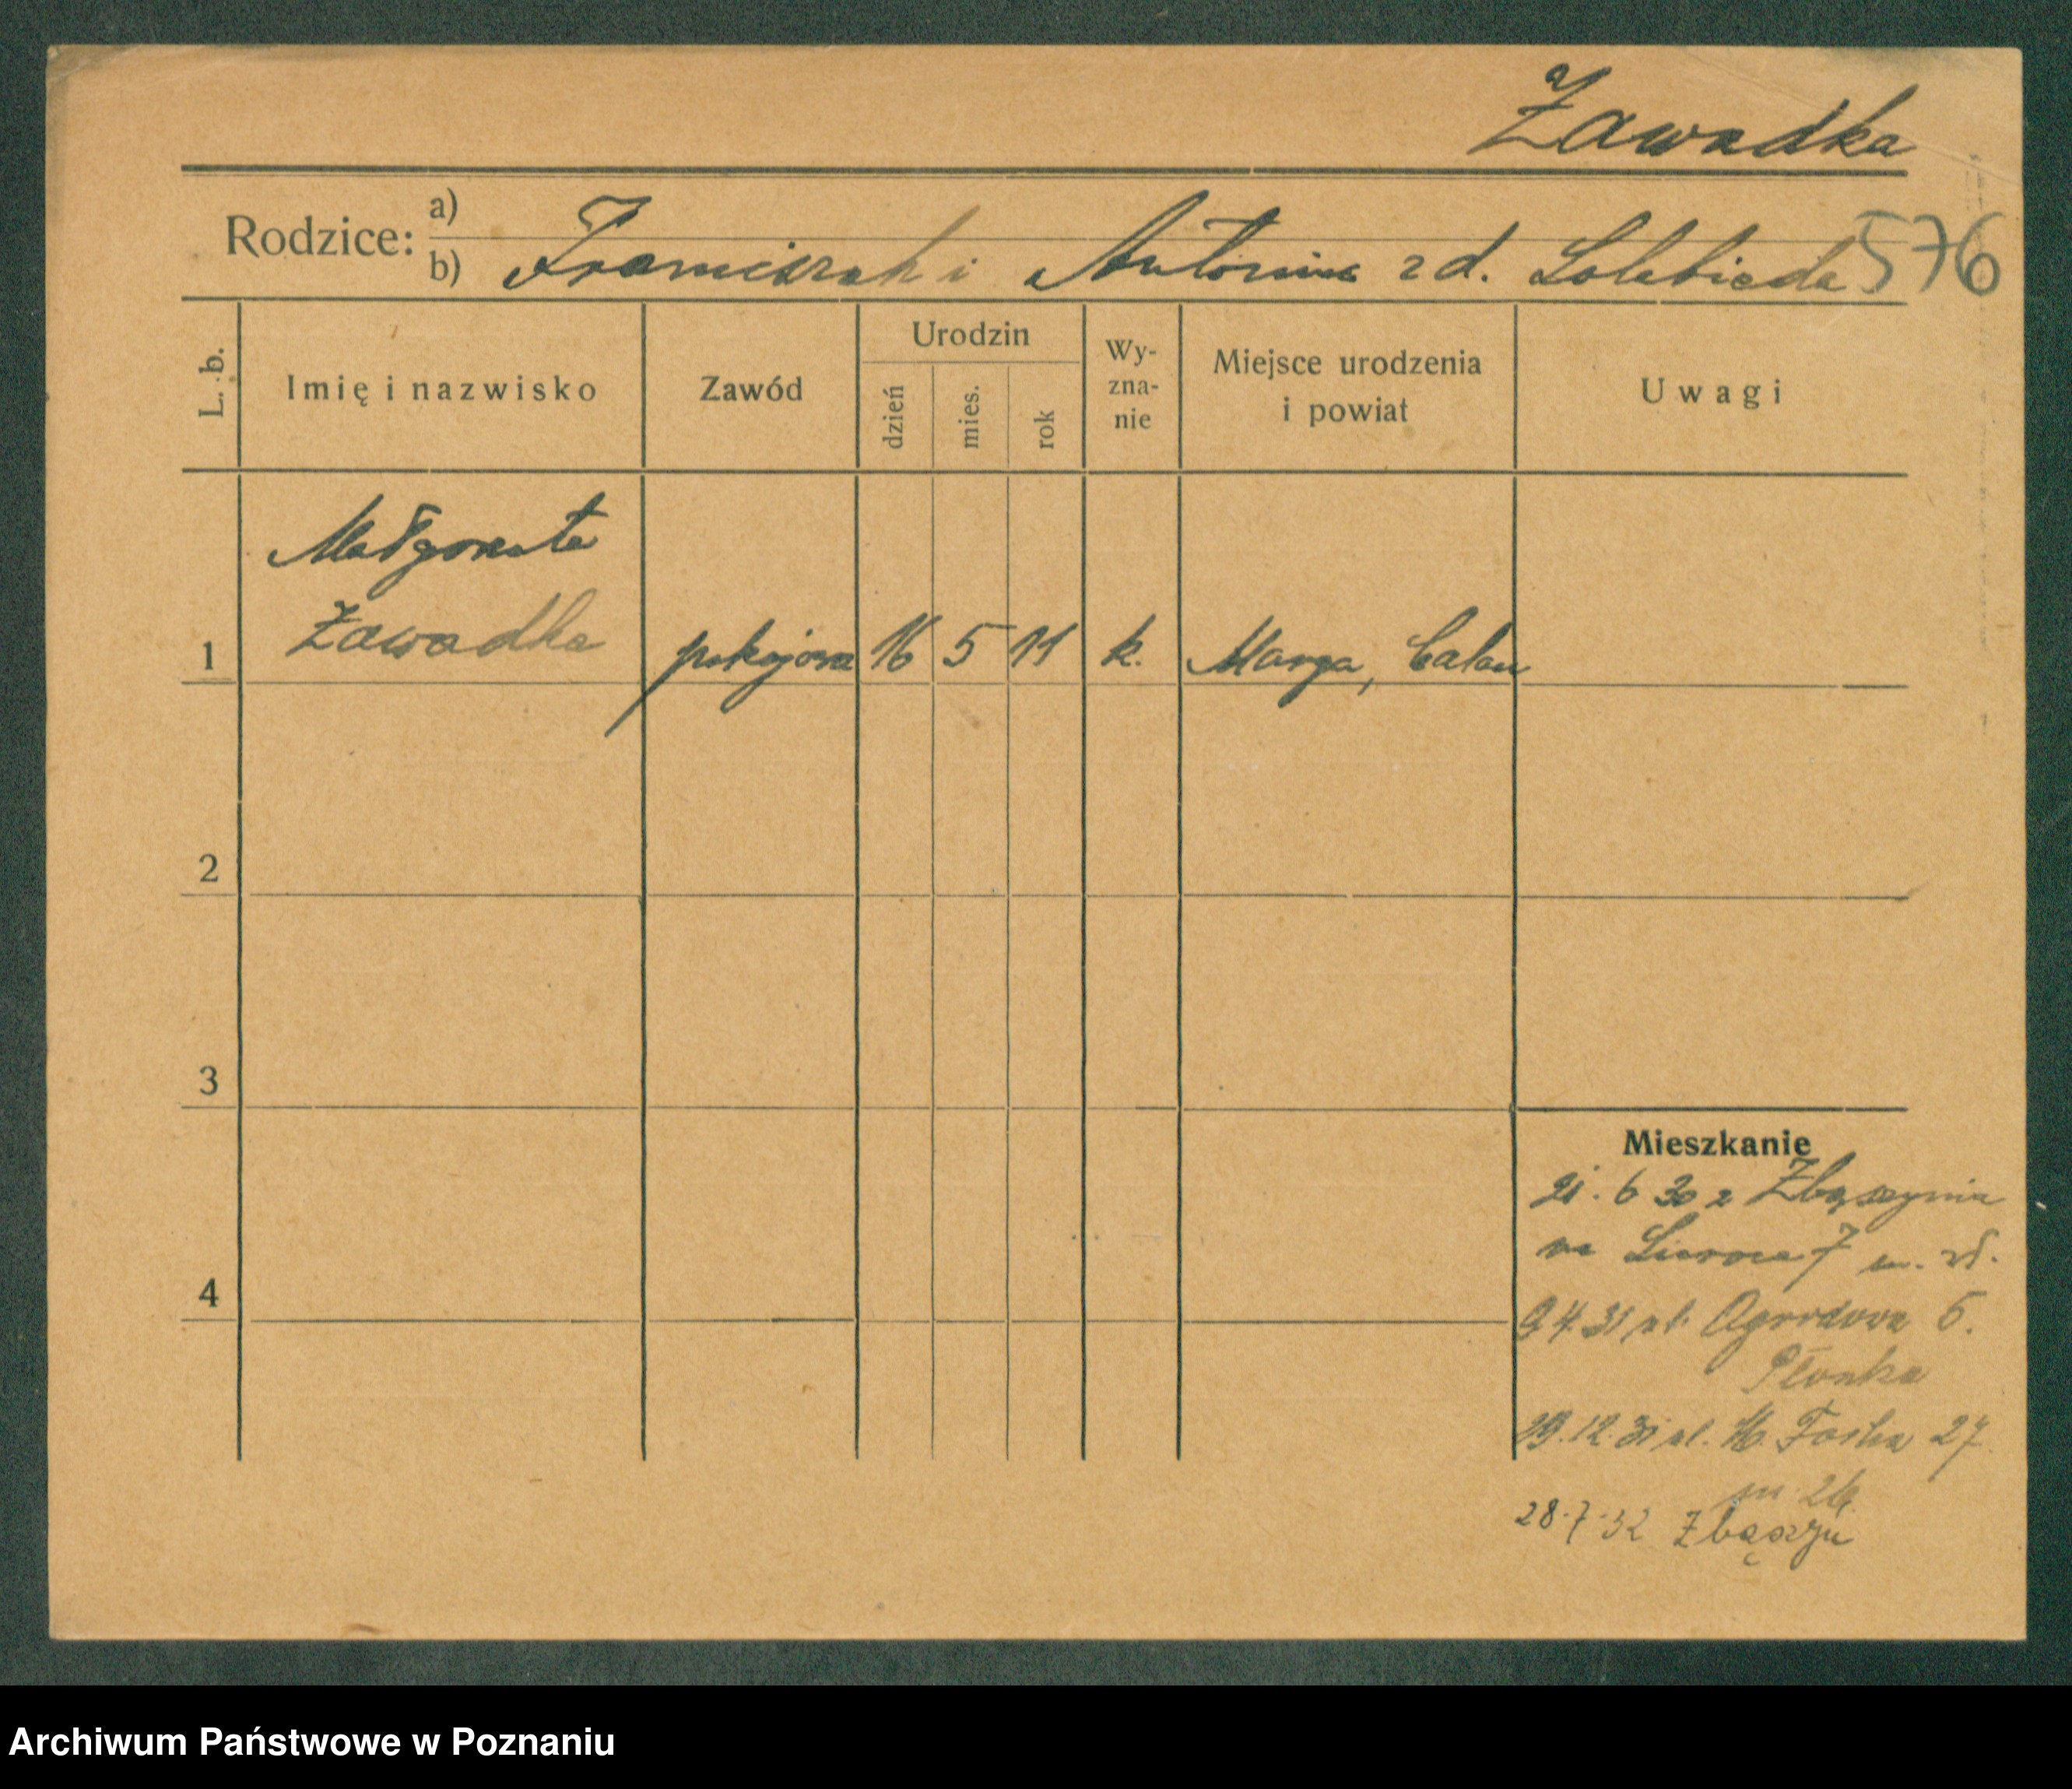 Zawadka
Rodzice: a)
b) Franciszek i Antonina z d. 576
L. b.
Imię i nazwisko
Zawód
Urodzin
dzień
mies.
rok
Wy-
zna-
nie
Miejsce urodzenia
i powiat
Uwagi
Małgorzata
Zawadka
1 pokojowa 16 5 11 k. Marga, Calau
2
3
4
Mieszkanie
21. 6 30 z Zbąszynia
na 7 m.
9 4. 31 ul. Ogrodowa 6.
Płonka
29. 12. 31 ul. M. Focha 27
m 26.
28.7.32 Zbąszyń
Archiwum Państwowe w Poznaniu